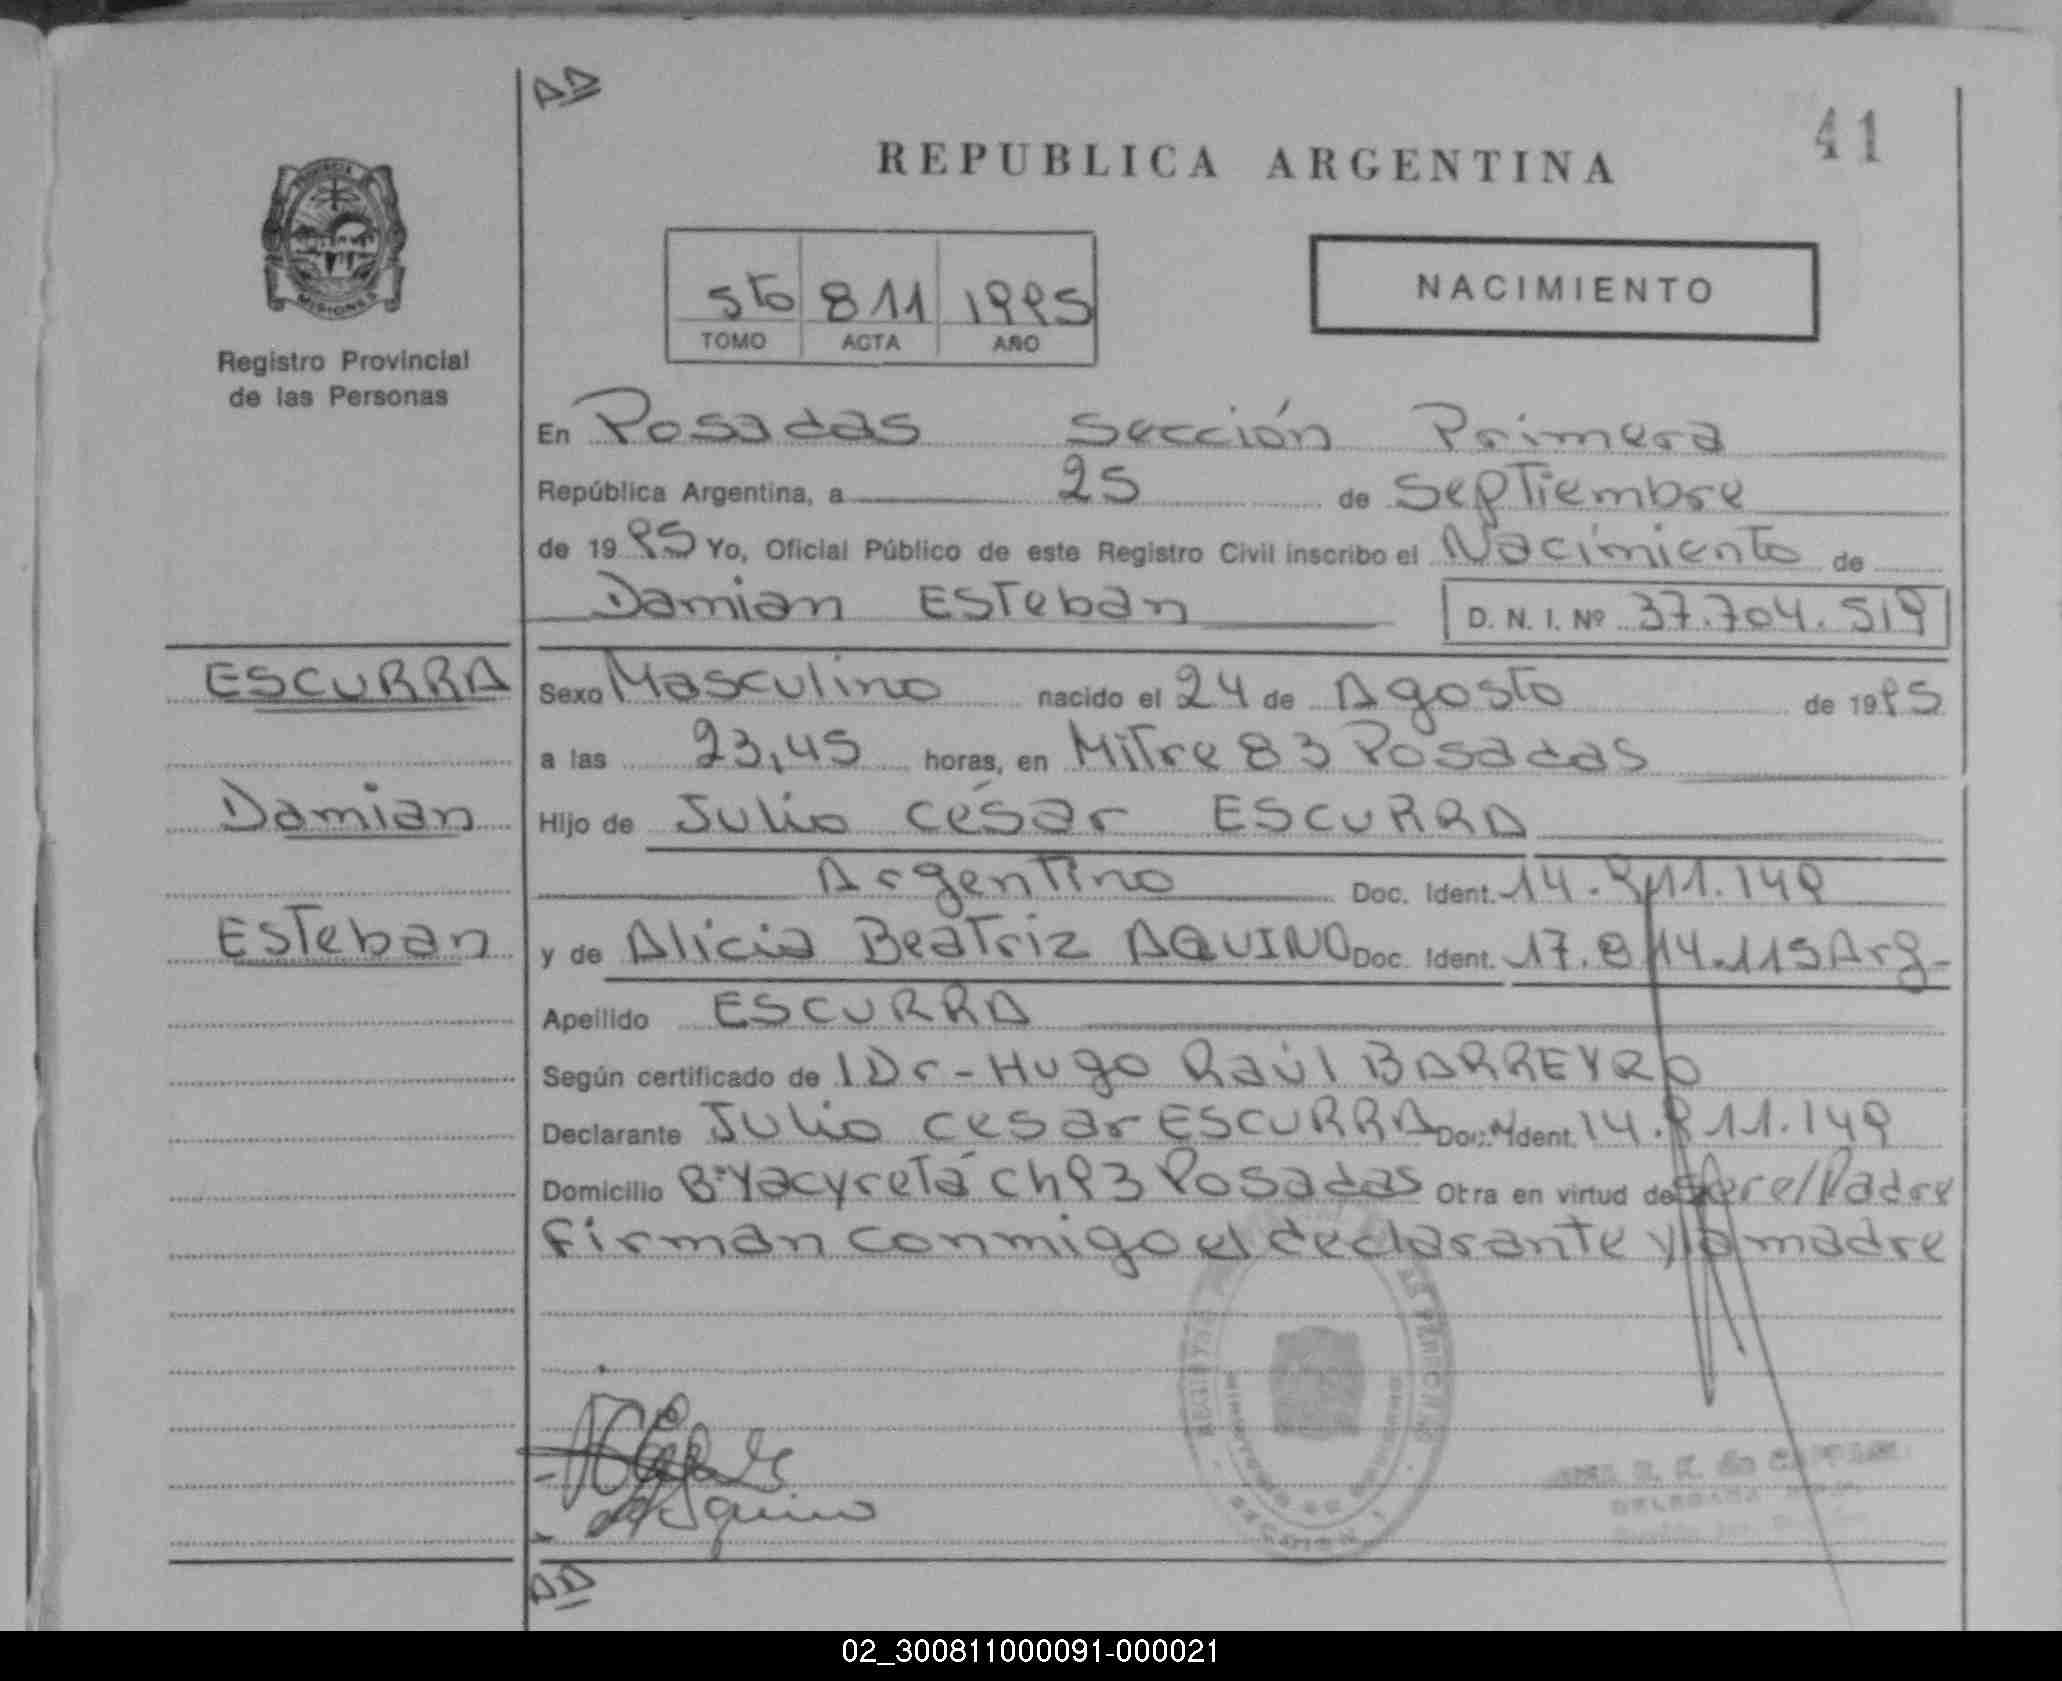 AD
41
REPUBLICA ARGENTINA
MISIONES
Registro Provincial
de las Personas
5to 811 1995
TOMO ACTA AÑO
NACIMIENTO
En Posadas Sección Primera
República Argentina, a 25 de Septiembre
de 1995 Yo, Oficial Público de este Registro Civil inscribo el Nacimiento de
Damian Esteban D. N. I. Nº 37.704.519
ESCURRA
Sexo Masculino nacido el 24 de Agosto de 1995
a las 23,45 horas, en Mitre 83 Posadas
Damian
Hijo de Julio César ESCURRA
Argentino Doc. Ident. 14.911.149
Esteban
y de Alicia Beatriz AQUINO Doc. Ident. 17.814.115 Arg-
Apellido ESCURRA
Según certificado de 1 Dr-Hugo Raúl BARREYRO
Declarante Julio Cesar ESCURRA Doc. Ident. 14.911.149
Domicilio Bº Yacyretá ch 93 Posadas Otra en virtud de ser el/Padre
firman conmigo el declarante y la madre
Aquino
AD
02_300811000091-000021